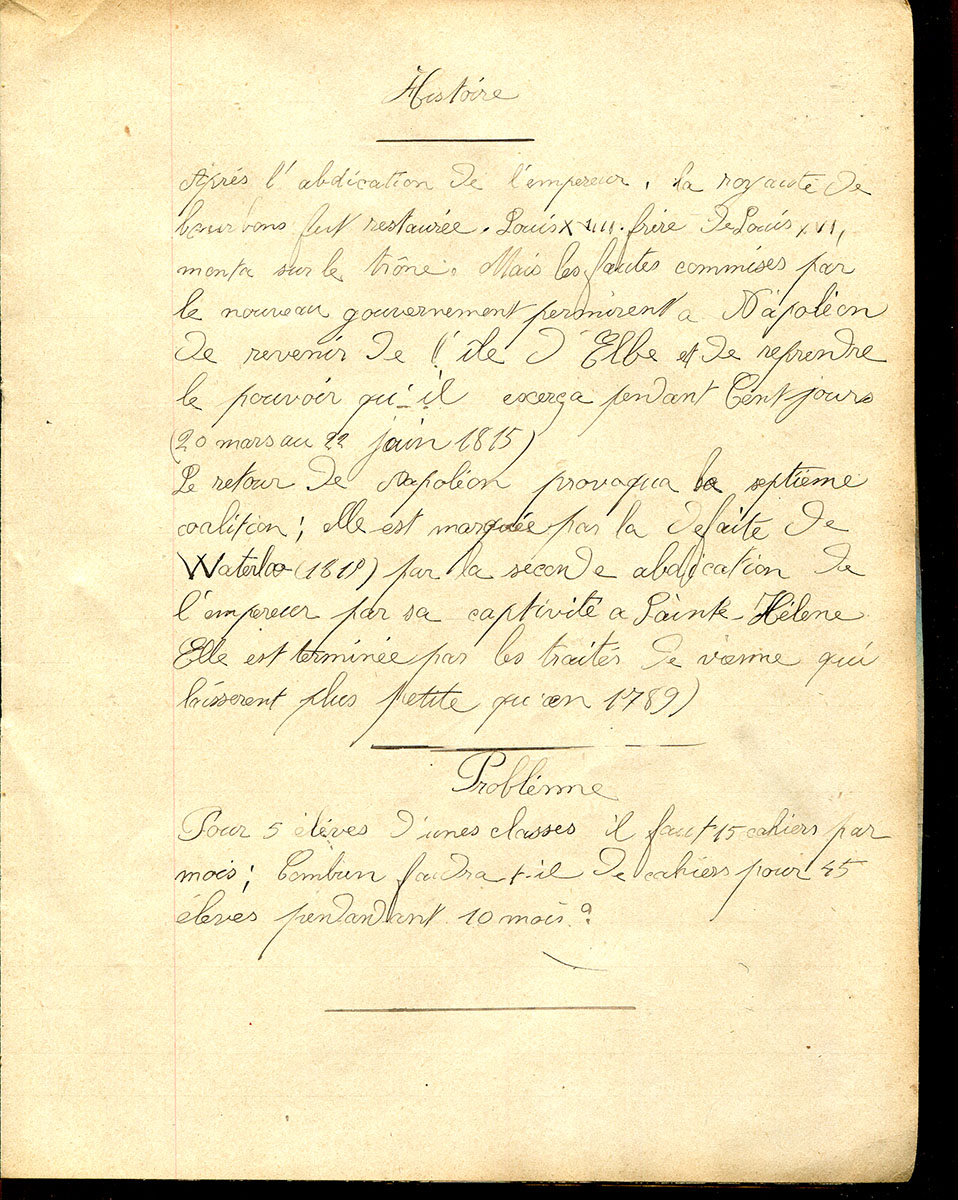 Histoire
Après l'abdication de l'empereur, la royauté de
bourbons fut restaurée. Louis XVIII. frère de Louis XVI,
monta sur le trône. Mais les fautes commises par
le nouveau gouvernement permirent a Napoléon
de revenir de l'île d'Elbe et de reprendre
le pouvoir qu'il exerça pendant Cent jours
(20 mars au 22 juin 1815)
Le retour de Napoléon provoqua la septième
coalition; elle est marquée par la défaite de
Waterloo (1815) par la seconde abdication de
l'empereur par sa captivité a Sainte-Hélene
Elle est terminée par les traités de vienne qui
laisserent plus petite qu'en 1789)
Problème
Pour 5 élèves d'unes classes il faut 15 cahiers par
mois; Combien faudra-t-il de cahiers pour 45
éleves pendandant 10 mois?